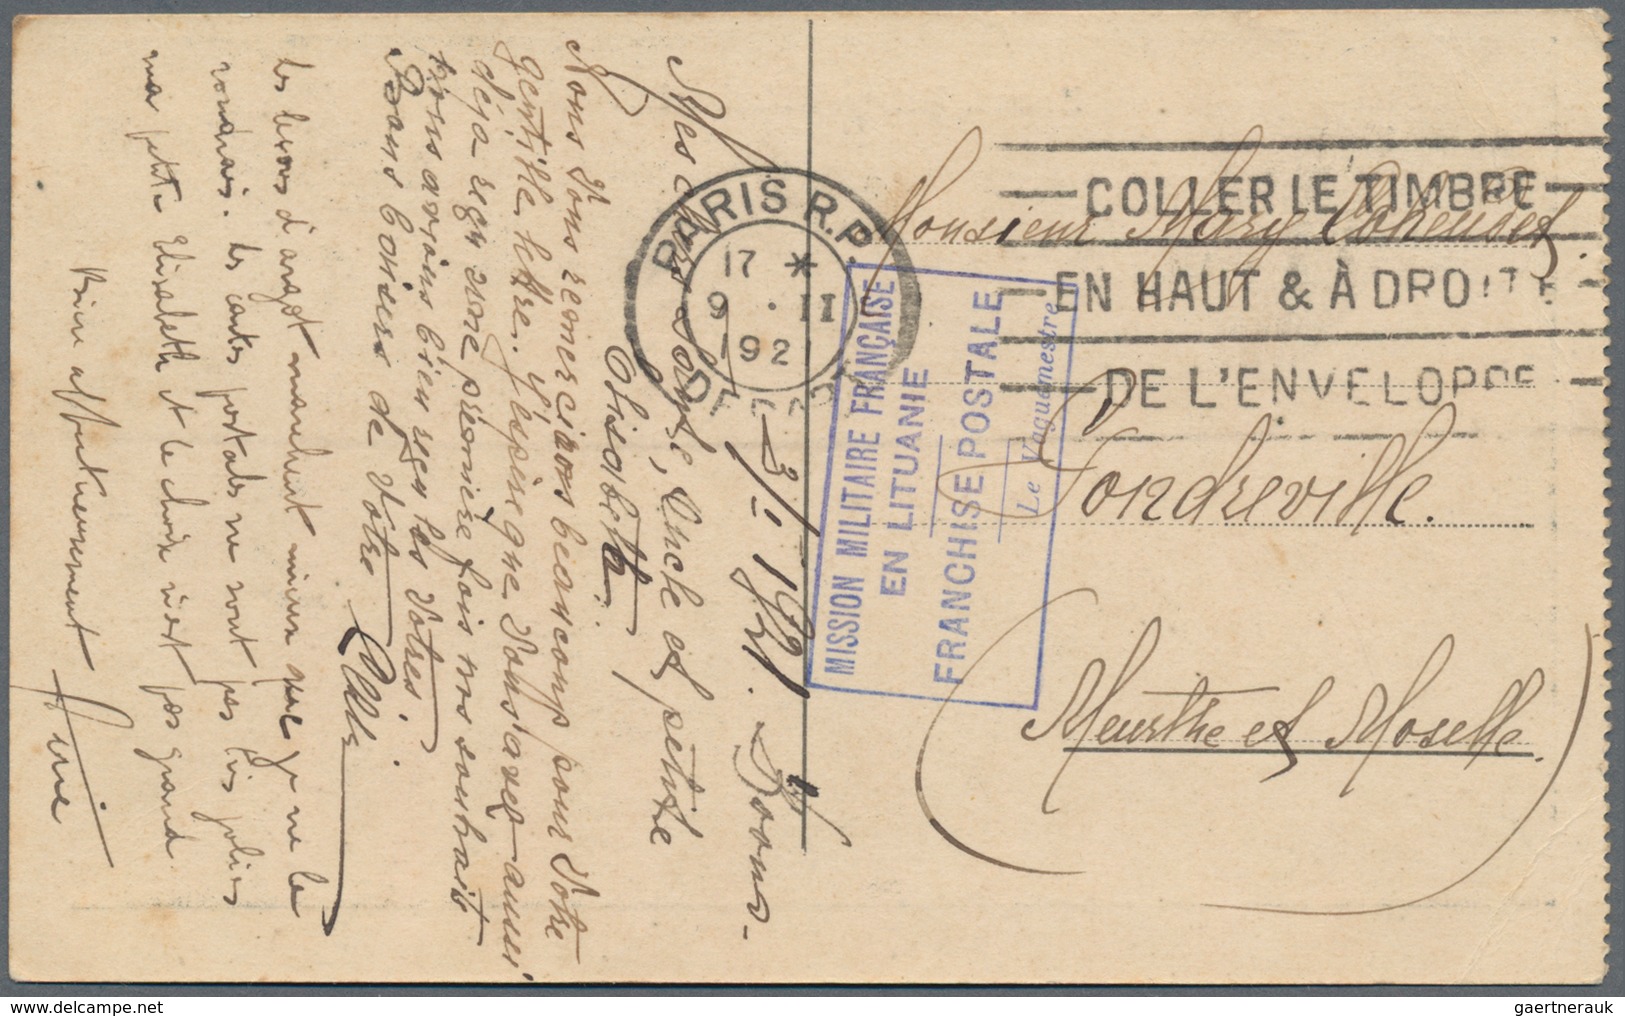 3/I 1921.
Mes chers Loulou, Oncle et petite
Elisabeth.
Nous Vous remercions beaucoup pour Votre
gentille lettre. J'espère que Vous avez aussi
déja reçu une première fois nos souhaits
nous avions bien reçu les Votres.
Bons baisers de Votre
les leçons d'argot manquent mieux que je ne le
. les cartes postales ne sont pas très jolies
ma petite Elisabeth et le choix n'est pas grand
Bien affectueusement
PARIS R.P.
17 *
9 . II
1921
DEPART
COLLER LE TIMBRE
EN HAUT & À DROITE
DE L'ENVELOPPE
MISSION MILITAIRE FRANÇAISE
EN LITUANIE
FRANCHISE POSTALE
Le Vaguemestre
Monsieur Mary
Gondreville.
Meurthe et Moselle.
www.philasearch.com
gaertnerauk